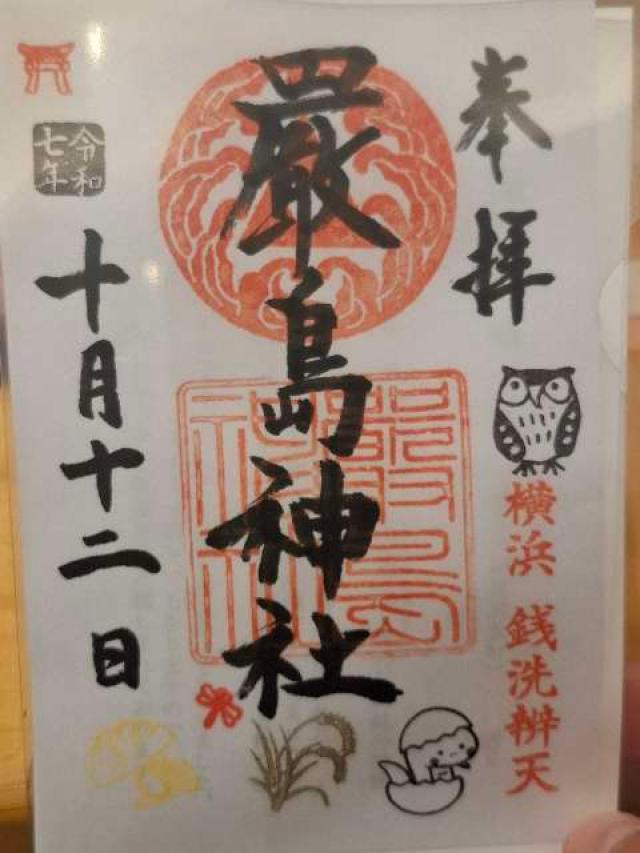 奉拝
横浜 銭洗辨天
嚴島神社
嚴島神社
令和七年
十月十二日